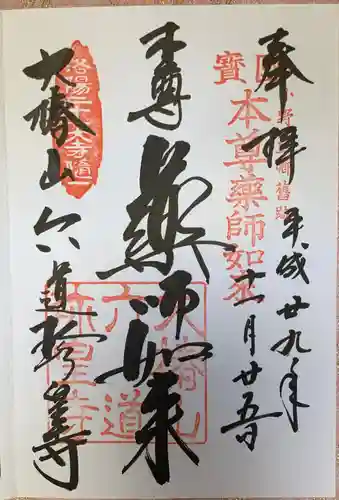 奉拝
平成廿九年
十一月廿五日
國寶
本尊藥師如来
本尊
藥師如来
洛陽二十
大椿山六道珍皇寺
大椿山
六道
珍皇寺